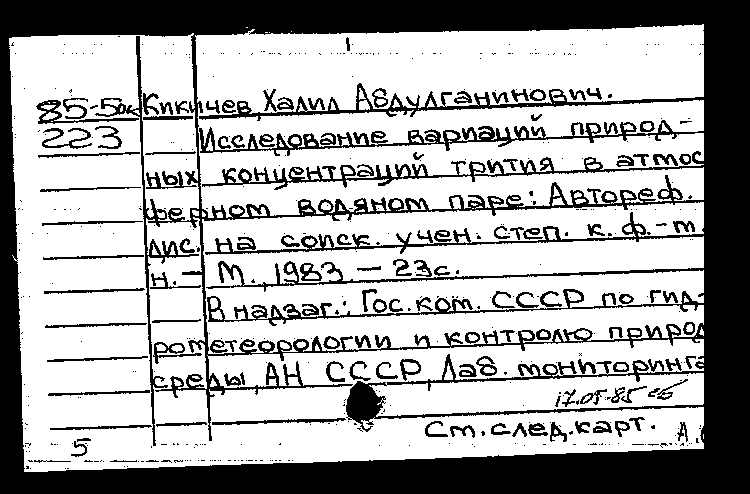 85-5ок Кикичев, Халил Абдулганинович.
223 Исследование вариаций природ-
ных концентраций трития в атмос
ферном водяном паре: Автореф.
дис. на соиск. учен. степ. к. ф.-м.
н. – М., 1983 – 23с.
В надзаг.: Гос. ком. СССР по гид-
рометеорологии и контролю природ
среды, АН СССР, Лаб. мониторинга
17.05.85
См. след. карт.
5